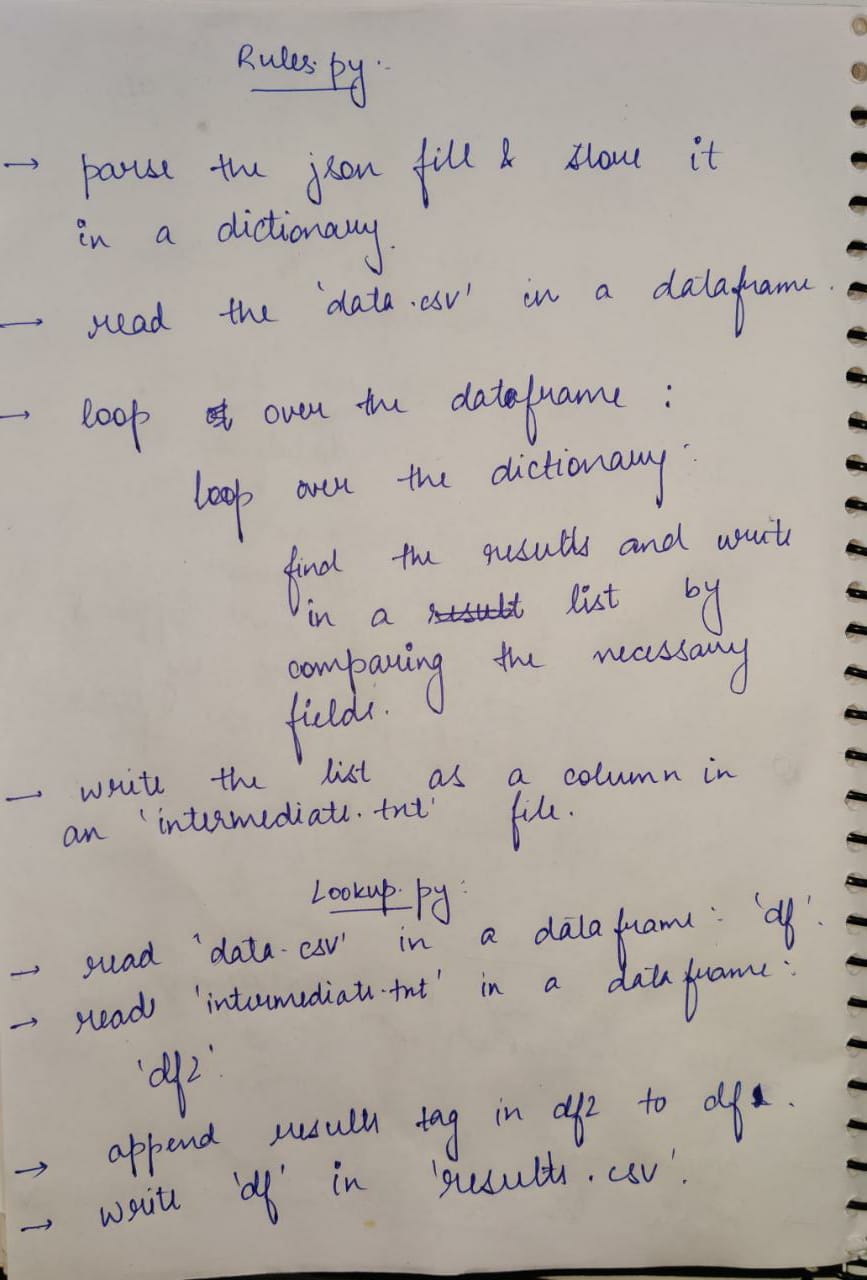 Rules.py :-
→ parse the json file & store it
in a dictionary.
→ read the 'data.csv' in a dataframe.
→ loop over the dataframe :
loop over the dictionary :
find the results and write
in a result list by
comparing the necessary
fields.
→ write the list as a column in
an 'intermediate.txt' file.
Lookup.py :
→ read 'data.csv' in a dataframe : 'df'.
→ read 'intermediate.txt' in a dataframe :
'df2'.
→ append results tag in df2 to df.
→ write 'df' in 'results.csv'.